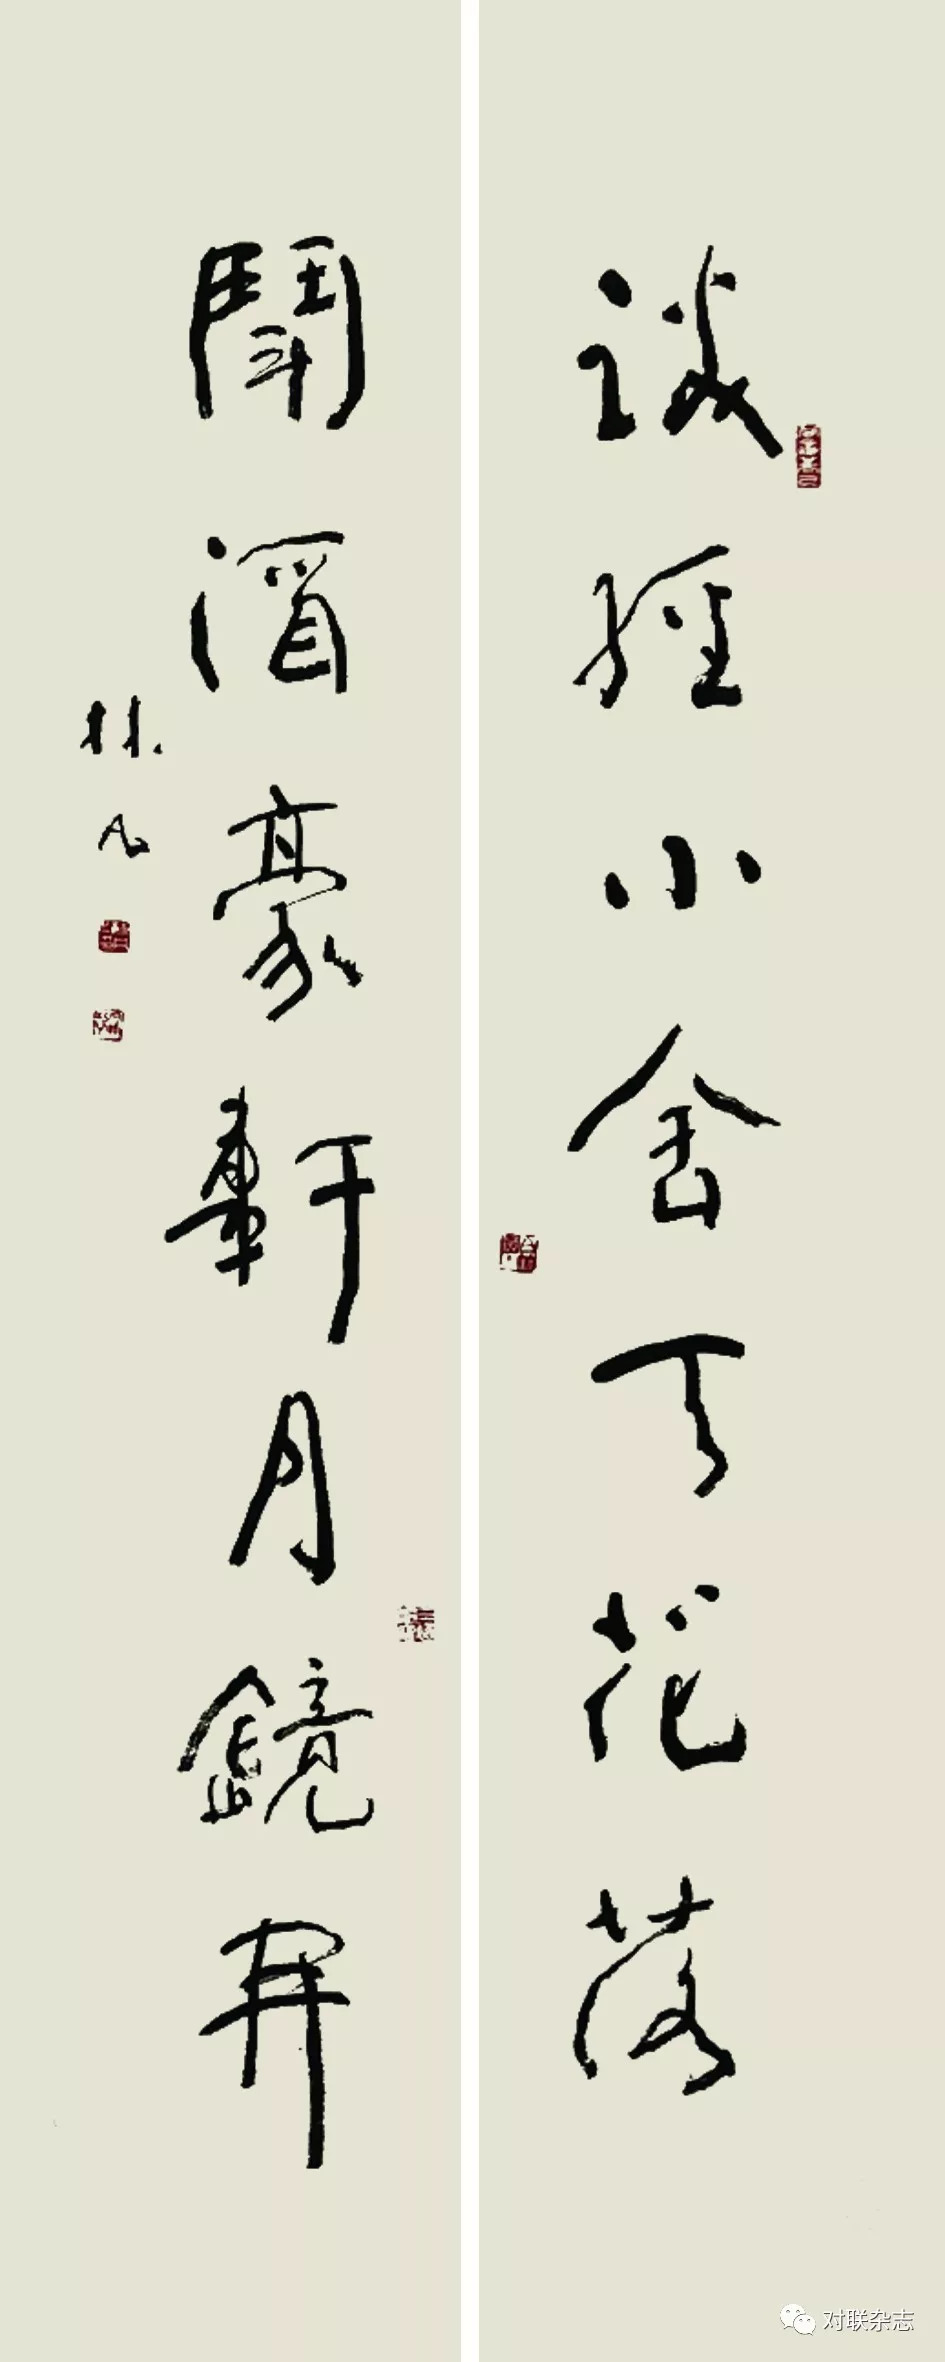 談經小舍天花落
鬥酒豪軒月鏡開
林凡
对联杂志